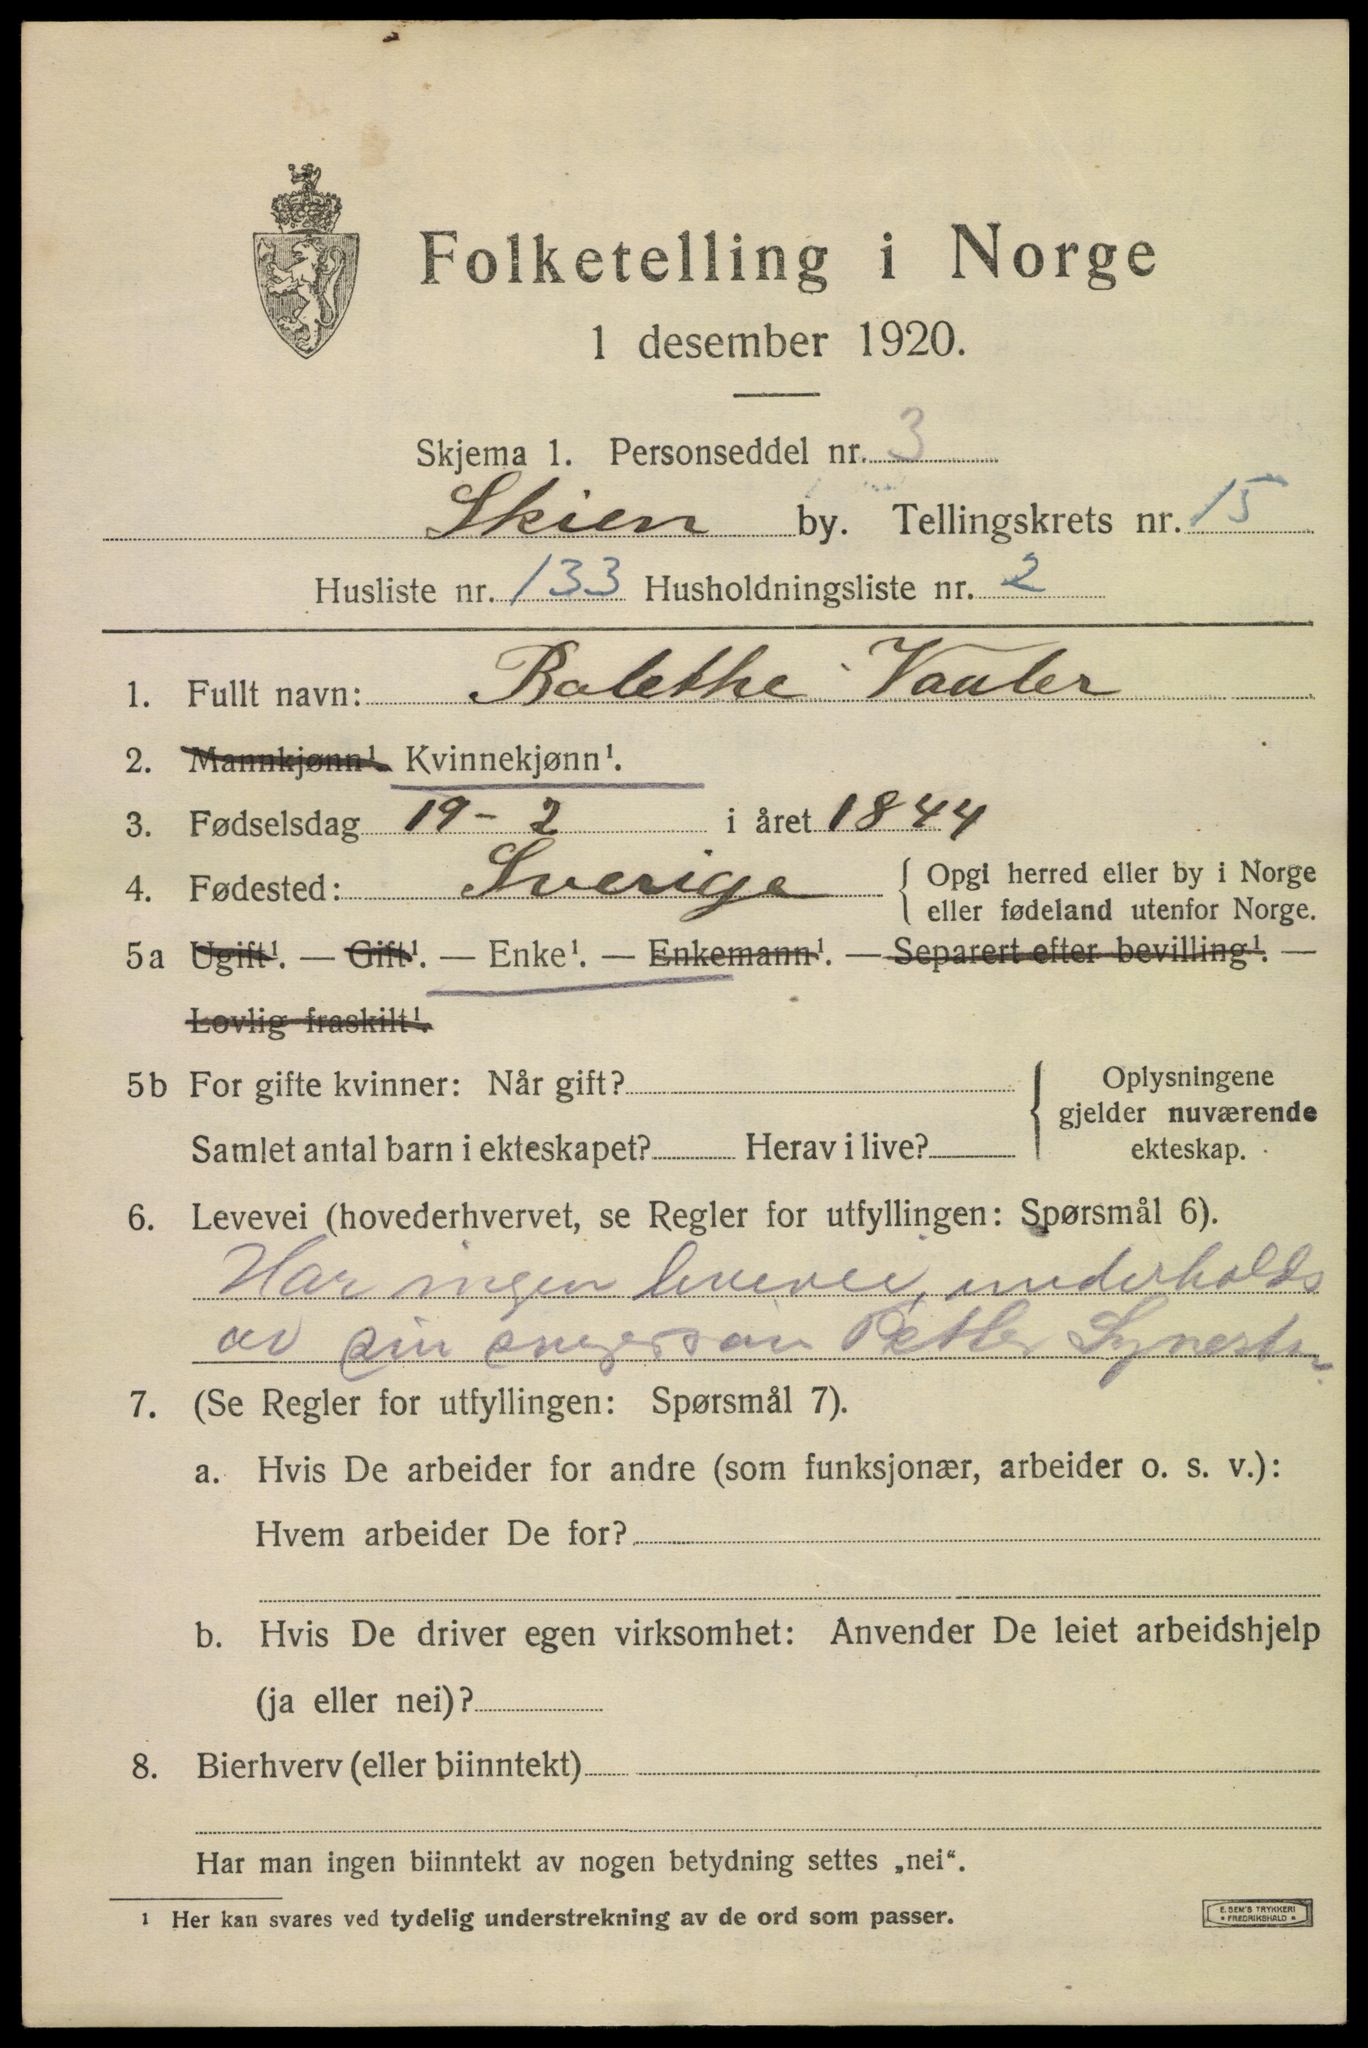 Folketelling i Norge
1 desember 1920.
Skjema 1. Personseddel nr. 3
Skien by. Tellingskrets nr. 15
Husliste nr. 133 Husholdningsliste nr. 2
1. Fullt navn: Bolethe Vauler
2. Mannkjønn¹. Kvinnekjønn¹.
3. Fødselsdag 19-2 i året 1844
4. Fødested: Sverige { Opgi herred eller by i Norge
eller fødeland utenfor Norge.
5a Ugift¹. — Gift¹. — Enke¹. — Enkemann¹. — Separert efter bevilling¹. —
Lovlig fraskilt¹.
5b For gifte kvinner: Når gift? { Oplysningene
gjelder nuværende
Samlet antal barn i ekteskapet? Herav i live? ekteskap.
6. Levevei (hovederhvervet, se Regler for utfyllingen: Spørsmål 6).
Har ingen levevei, underholdes
av sin svigersøn Petter
7. (Se Regler for utfyllingen: Spørsmål 7).
a. Hvis De arbeider for andre (som funksjonær, arbeider o. s. v.):
Hvem arbeider De for?
b. Hvis De driver egen virksomhet: Anvender De leiet arbeidshjelp
(ja eller nei)?
8. Bierhverv (eller biinntekt)
Har man ingen biinntekt av nogen betydning settes „nei“.
¹ Her kan svares ved tydelig understrekning av de ord som passer.
E. SEM'S TRYKKERI
• FREDRIKSHALD •